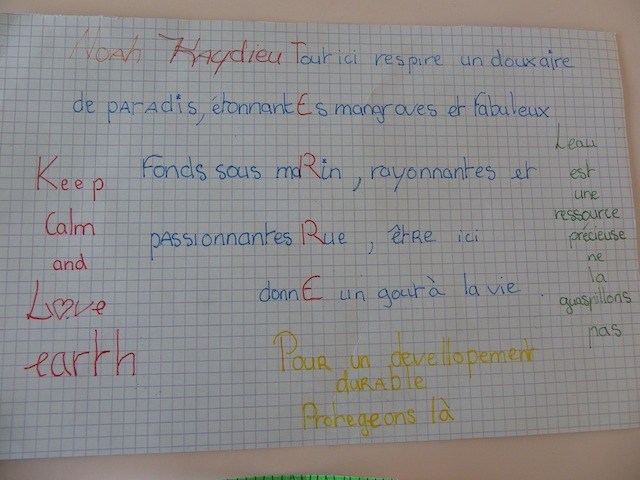 Noah Haydieu Tout ici respire un doux aire
de paradis, étonnantEs mangroves et fabuleux
Fonds sous maRin, rayonnantes et
passionnantes Rue, être ici
donnE un gout à la vie.
Keep
Calm
and
Love
earth
Leau
est
une
ressource
précieuse
ne
la
guaspillons
pas
Pour un devellopement
durable
Prohegeons là